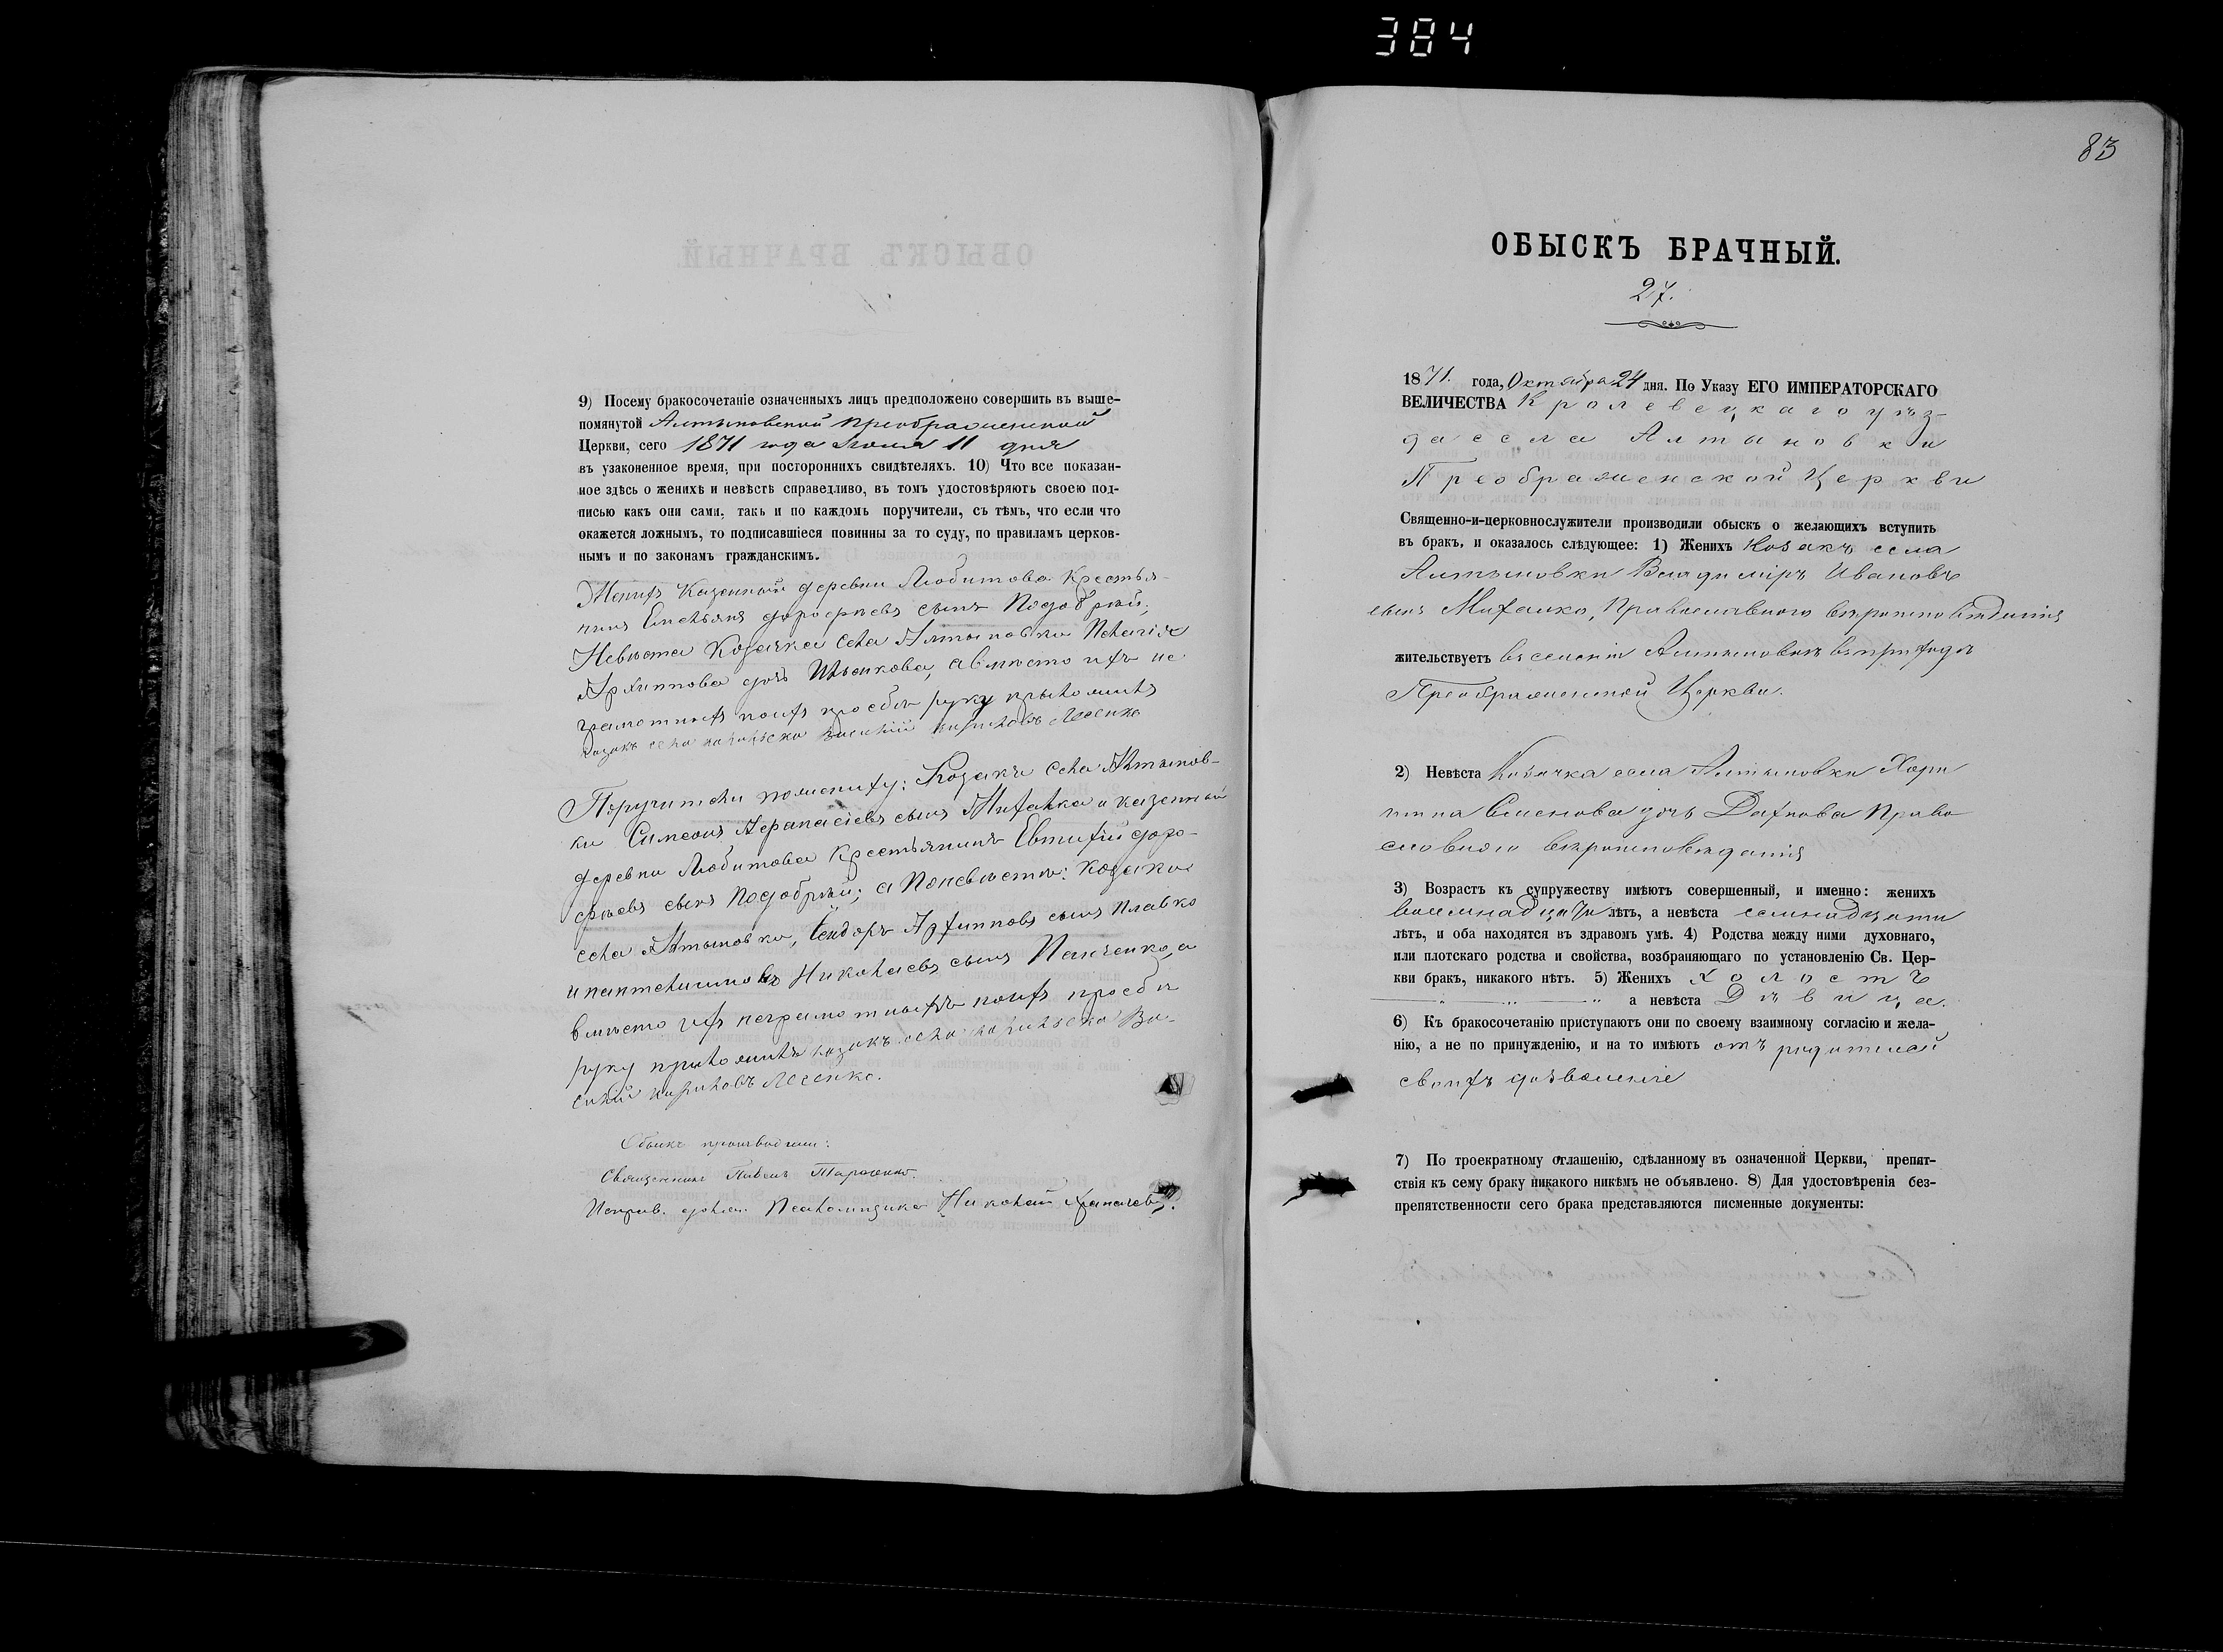 384
9) Посему бракосочетаніе означенныхъ лицъ предположено совершить въ выше-
помянутой Алтыновской Преображенской
Церкви, сего 1871 года Іюля 11 дня
въ узаконенное время, при постороннихъ свидѣтеляхъ. 10) Что все показан-
ное здѣсь о женихѣ и невѣстѣ справедливо, въ томъ удостовѣряютъ своею под-
писью какъ они сами, такъ и по каждомъ поручители, съ тѣмъ, что если что
окажется ложнымъ, то подписавшіеся повинны за то суду, по правиламъ церков-
нымъ и по законамъ гражданскимъ.
Женихъ Казенной деревни Любитова Крестья-
нинъ Емельянъ дорофеевъ сынъ Подобрій,
Невѣста Козачка Села Алтыновки
Архиппова дочь а вмѣсто ихъ не
грамотныхъ по ихъ прозбѣ руку приложилъ
козакъ села Василій Кириловъ
Поручители по жениху: Козакъ Села Алтынов-
ки Симеонъ Афанасіевъ сынъ Михалко и казенной
деревни Любитова Крестьянинъ Евтихій доро-
феевъ сынъ Подобрій; а По невѣстѣ: козаки
села Алтыновки, Ѳеодоръ Архипповъ сынъ Плавко
и пантелиимонъ Николаевъ сынъ Панченко, а
вмѣсто ихъ неграмотныхъ по ихъ прозбѣ
руку приложилъ козакъ села Ва-
силій Кириловъ
Обыскъ производили:
Священникъ Павелъ
Исправ. долж. Псаломщика Николай
83
ОБЫСКЪ БРАЧНЫЙ.
27.
1871. года, Октября 24 дня. По Указу ЕГО ИМПЕРАТОРСКАГО
ВЕЛИЧЕСТВА Кролевецкаго уѣз-
да села Алтыновки
Преображенской Церкви
Священно-и-церковнослужители производили обыскъ о желающихъ вступить
въ бракъ, и оказалось слѣдующее: 1) Женихъ Козакъ села
Алтыновки Владиміръ Ивановъ
сынъ Михалко, Православного вѣроисповѣданія
жительствуетъ въ селеніи Алтыновкѣ въ приходѣ
Преображенской Церкви.
2) Невѣста Козачка села Алтыновки Хари
тина Семенова дочь Дахнова Право
славного вѣроисповѣданія
3) Возрастъ къ супружеству имѣютъ совершенный, и именно: женихъ
восемнадцати лѣтъ, а невѣста семнадцати
лѣтъ, и оба находятся въ здравомъ умѣ. 4) Родства между ними духовнаго,
или плотскаго родства и свойства, возбраняющаго по установленію Св. Цер-
кви бракъ, никакого нѣтъ. 5) Женихъ Холостъ
а невѣста Дѣвица.
6) Къ бракосочетанію приступаютъ они по своему взаимному согласію и жела-
нію, а не по принужденію, и на то имѣютъ отъ родителей
своихъ дозволеніе
7) По троекратному оглашенію, сдѣланному въ означенной Церкви, препят-
ствія къ сему браку никакого никѣмъ не объявлено. 8) Для удостовѣренія без-
препятственности сего брака представляются писменные документы: